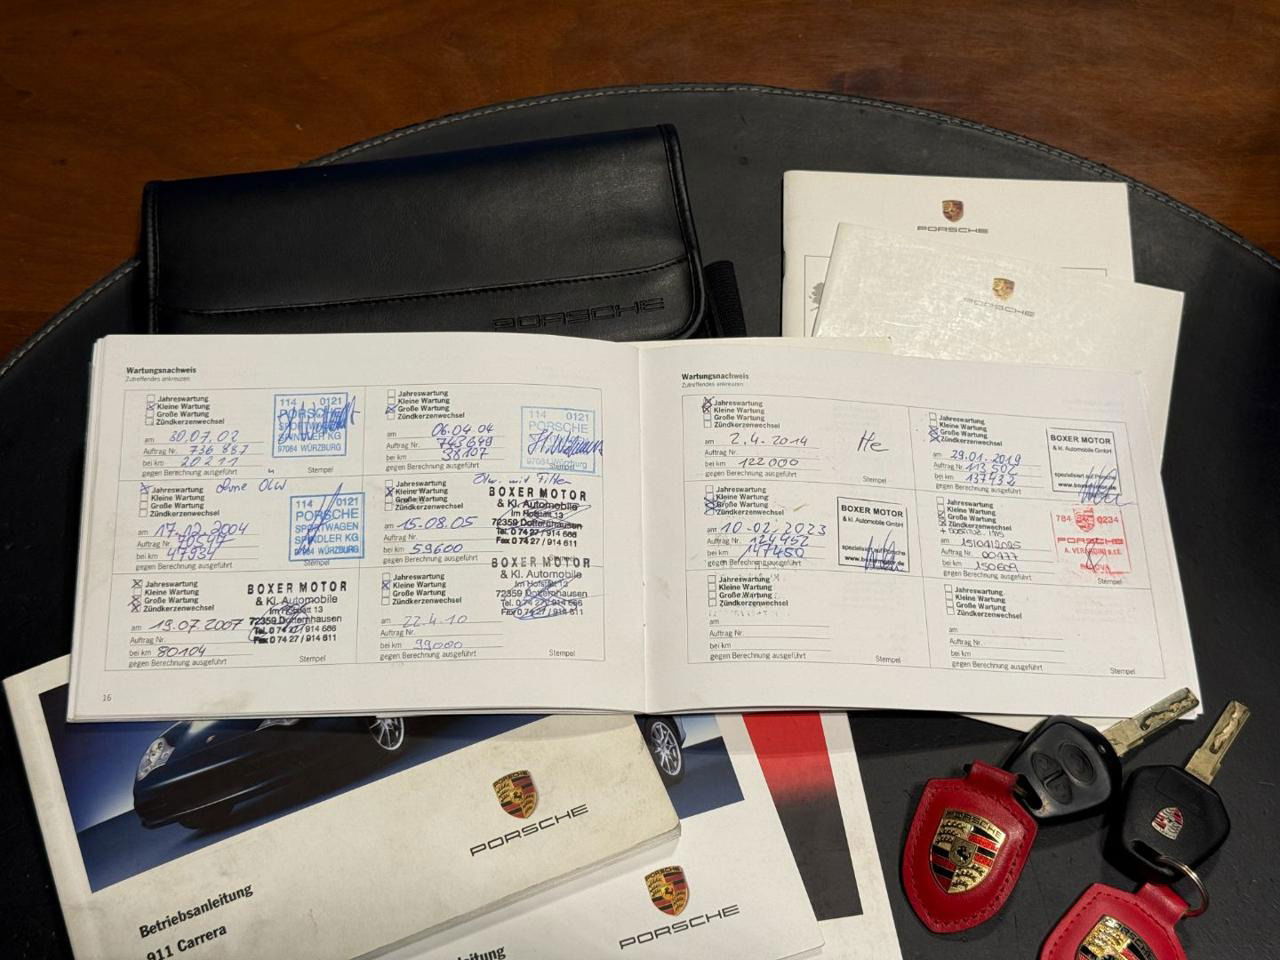 PORSCHE
PORSCHE
PORSCHE
Wartungsnachweis
Zutreffendes ankreuzen
Jahreswartung
Kleine Wartung
Große Wartung
Zündkerzenwechsel
am 30.07.02
Auftrag Nr. 736 887
bei km 20211
gegen Berechnung ausgeführt
Stempel
114 0121
PORSCHE
SPORTWAGEN
SPINDLER KG
97084 WÜRZBURG
Jahreswartung
Kleine Wartung
Große Wartung
Zündkerzenwechsel
am 06.04.04
Auftrag Nr. 743649
bei km 38107
gegen Berechnung ausgeführt
Stempel
114 0121
PORSCHE
97084 Würzburg
Jahreswartung
Kleine Wartung
Große Wartung
Zündkerzenwechsel
ohne Ölw
am 17.12.2004
Auftrag Nr.
bei km 47934
gegen Berechnung ausgeführt
114 0121
PORSCHE
SPORTWAGEN
SPINDLER KG
97084 WÜRZBURG
Jahreswartung
Kleine Wartung
Große Wartung
Zündkerzenwechsel
Ölw. mit Filter
am 15.08.05
Auftrag Nr.
bei km 59600
gegen Berechnung ausgeführt
Stempel
BOXER MOTOR
& Kl. Automobile
Im Hofstatt 13
72359 Dotternhausen
Tel. 0 74 27 / 914 666
Fax 0 74 27 / 914 611
Jahreswartung
Kleine Wartung
Große Wartung
Zündkerzenwechsel
am 19.07.2007
Auftrag Nr.
bei km 80104
gegen Berechnung ausgeführt
Stempel
BOXER MOTOR
& Kl. Automobile
Im Hofstatt 13
72359 Dotternhausen
Tel. 0 74 27 / 914 666
Fax 0 74 27 / 914 611
Jahreswartung
Kleine Wartung
Große Wartung
Zündkerzenwechsel
am 22.4.10
Auftrag Nr.
bei km 99000
gegen Berechnung ausgeführt
Stempel
BOXER MOTOR
& Kl. Automobile
Im Hofstatt 13
72359 Dotternhausen
Tel. 0 74 27 / 914 666
Fax 0 74 27 / 914 611
16
Wartungsnachweis
Zutreffendes ankreuzen
Jahreswartung
Kleine Wartung
Große Wartung
Zündkerzenwechsel
am 2.4.2014
Auftrag Nr.
bei km 122000
gegen Berechnung ausgeführt
Stempel
He
Jahreswartung
Kleine Wartung
Große Wartung
Zündkerzenwechsel
am 29.01.2019
Auftrag Nr. 113502
bei km 137432
gegen Berechnung ausgeführt
BOXER MOTOR
& kl. Automobile GmbH
Jahreswartung
Kleine Wartung
Große Wartung
Zündkerzenwechsel
am 10.02.2023
Auftrag Nr. 124452
bei km 147450
gegen Berechnung ausgeführt
BOXER MOTOR
& kl. Automobile GmbH
Jahreswartung
Kleine Wartung
Große Wartung
Zündkerzenwechsel
am 15/04/2025
Auftrag Nr. 00437
bei km 150609
gegen Berechnung ausgeführt
Stempel
784 0234
PORSCHE
Jahreswartung
Kleine Wartung
Große Wartung
Zündkerzenwechsel
am
Auftrag Nr.
bei km
gegen Berechnung ausgeführt
Stempel
Jahreswartung
Kleine Wartung
Große Wartung
Zündkerzenwechsel
am
Auftrag Nr.
bei km
gegen Berechnung ausgeführt
Stempel
PORSCHE
Betriebsanleitung
911 Carrera
PORSCHE
PORSCHE